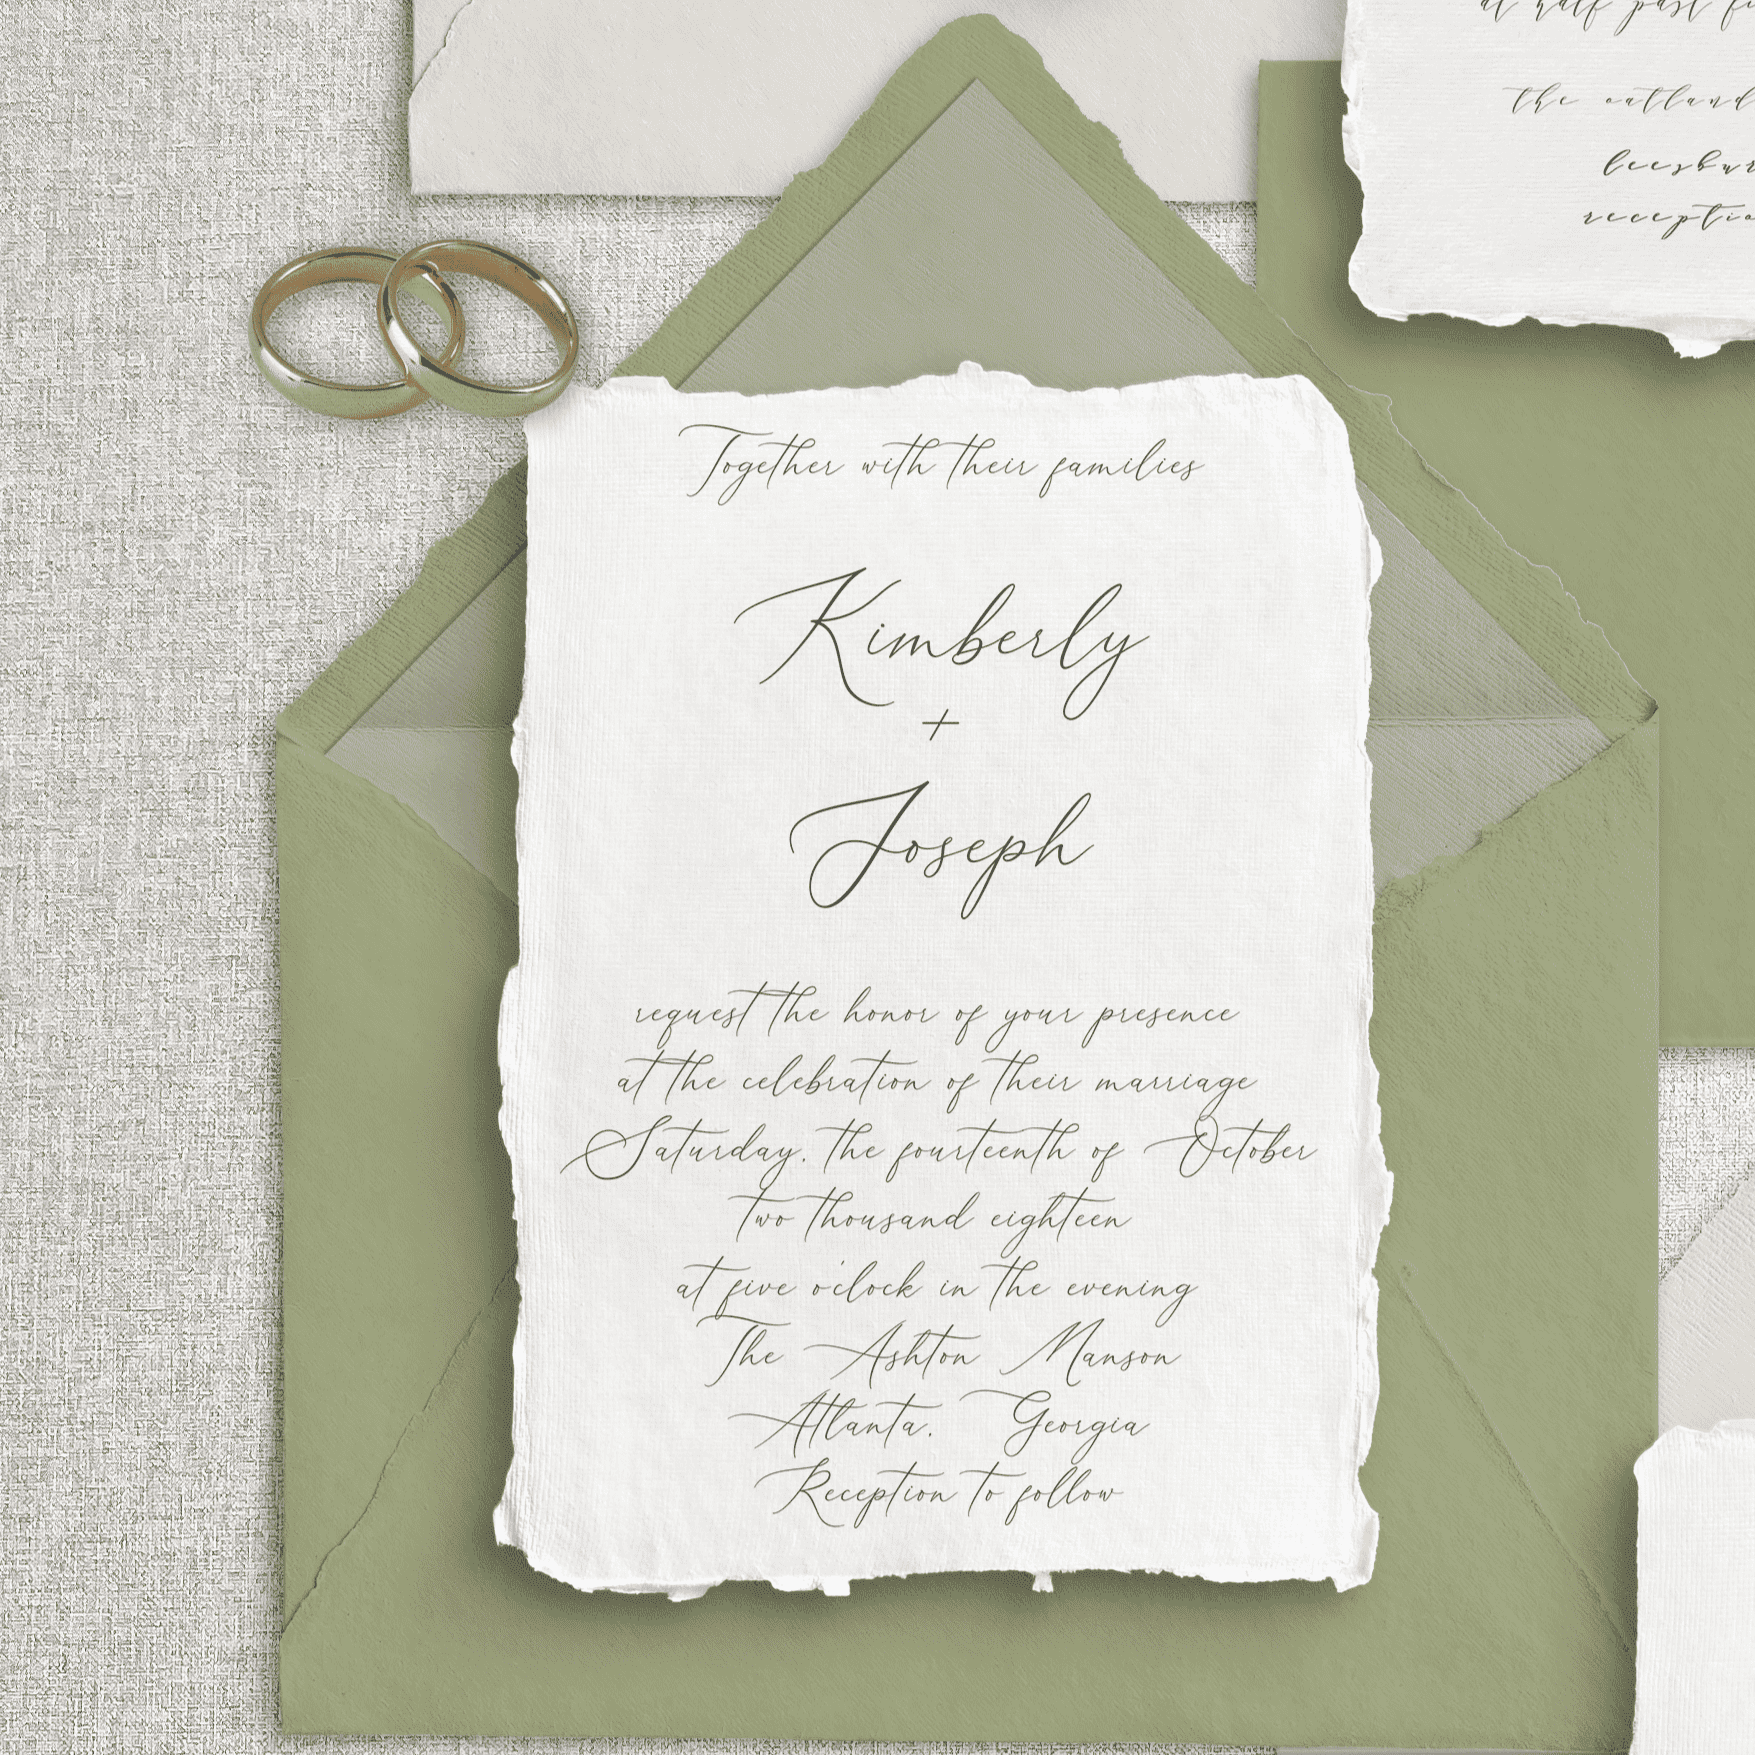 at half past
the oatland
leesbur
receptio
Together with their families
Kimberly
+
Joseph
request the honor of your presence
at the celebration of their marriage
Saturday, the fourteenth of October
two thousand eighteen
at five o'clock in the evening
The Ashton Manson
Atlanta, Georgia
Reception to follow